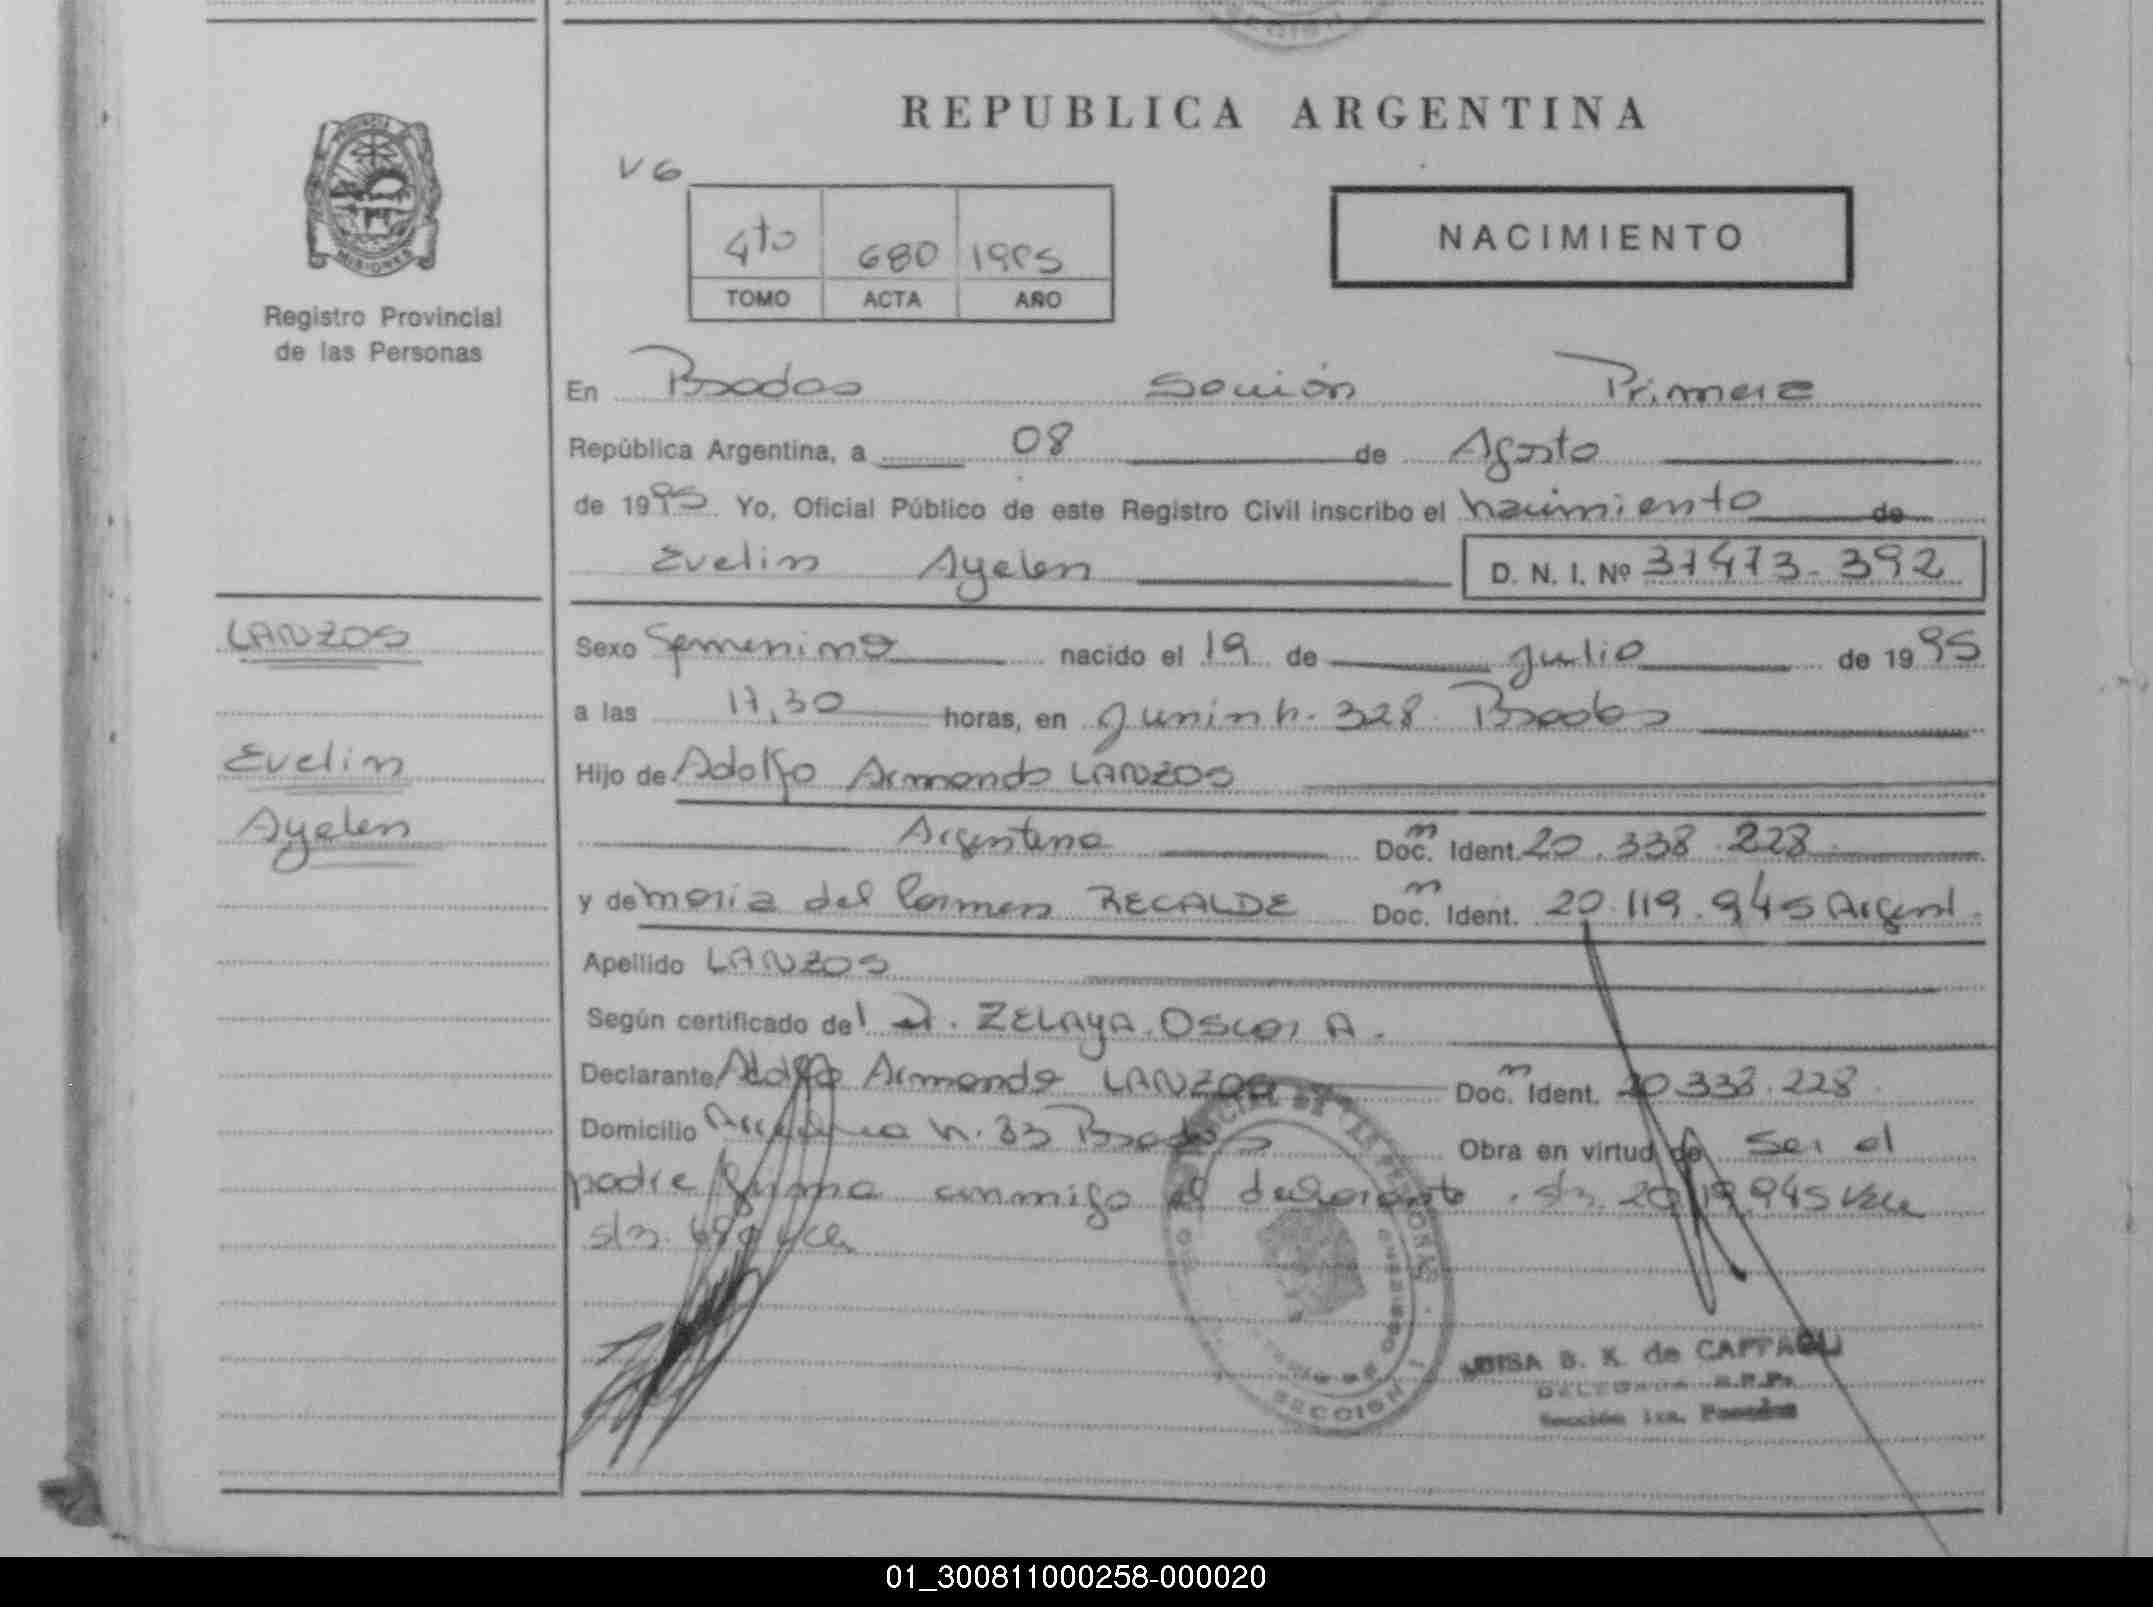 REPUBLICA ARGENTINA
V6
4to 680 1995
TOMO ACTA AÑO
NACIMIENTO
MISIONES
Registro Provincial
de las Personas
En Posadas Sección Primera
República Argentina, a 08 de Agosto
de 1995 Yo, Oficial Público de este Registro Civil inscribo el nacimiento de
Evelin Ayelen D. N. I. Nº
LANZOS
Sexo Femenino nacido el 19 de Julio de 1995
a las 17,30 horas, en Junin n. 328. Posadas
Evelin
Hijo de Adolfo Armando LANZOS
Ayelen
Argentino Doc. m Ident. 20.338.228
y de Maria del Carmen RECALDE Doc. m Ident. 20.119.945 Argent.
Apellido LANZOS
Según certificado del D. ZELAYA. Oscar A.
Declarante Adolfo Armando LANZOS Doc. m Ident. 20.338.228
Domicilio n. 33 Posadas Obra en virtud de ser el
padre firma conmigo el declarante. s/r. 20.119.945 Vale
s/r. 680 Vale
SECCION 1
LUISA B. K. de
DELEGADA R.P.P.
Sección 1ra. Posadas
01_300811000258-000020